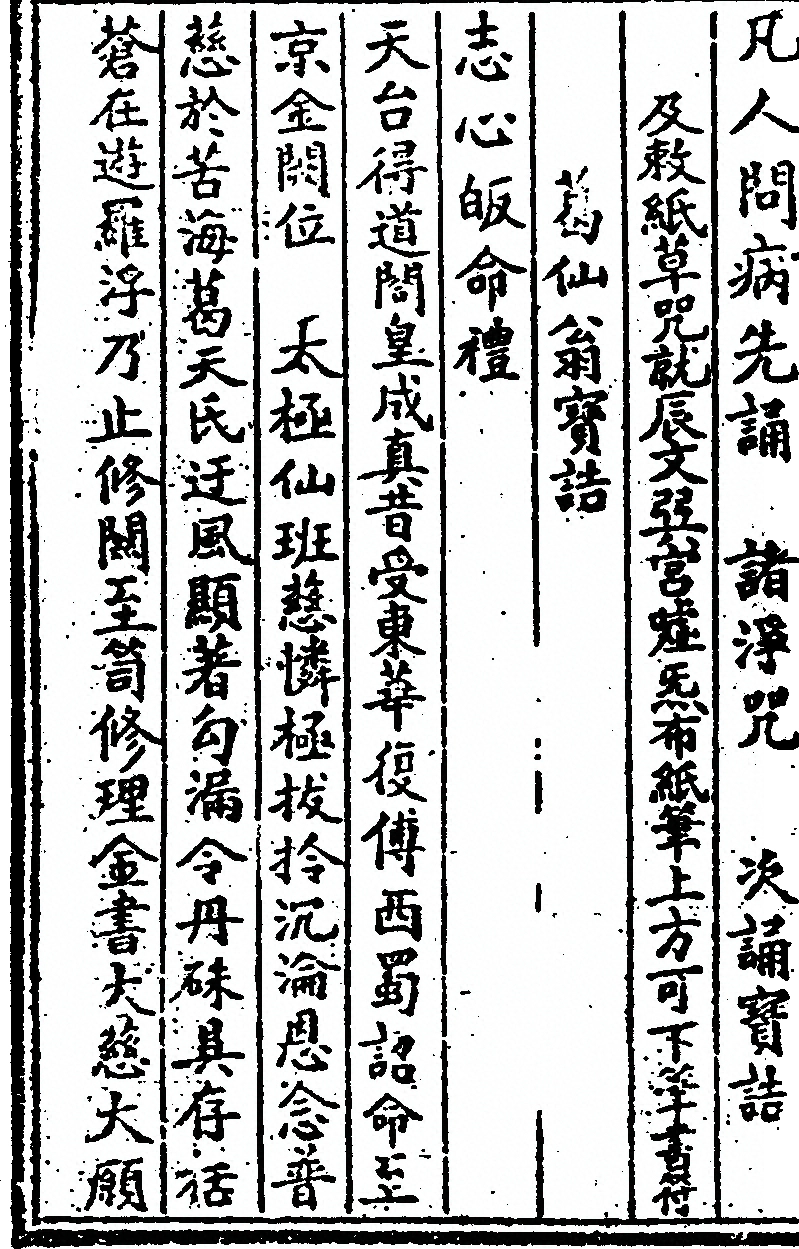 凡人問病先誦　諸淨咒　次誦寶誥
及敕紙草咒就辰文昇宮噓炁布紙筆上方可下筆書符
葛仙翁寶誥
志心皈命禮
天台得道閤皇成真昔受東華復傳西蜀詔命玉
京金闕位　太極仙班慈憐極拔拎沉淪恩念普
慈於苦海葛天氏迂風顯著勾漏令丹硃具存活
蒼在遊羅浮乃止修闕至笥修理金書大慈大願